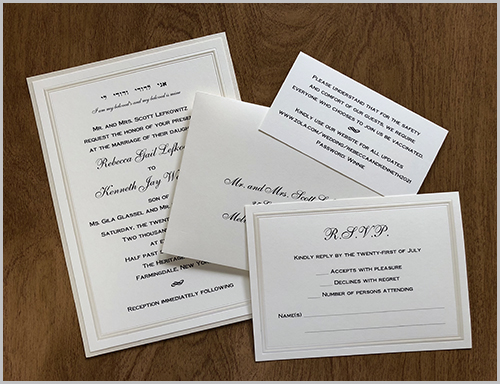 אני לדודי ודודי לי
I am my beloved's and my beloved is mine
Mr. and Mrs. Scott Lefkowitz
request the honor of your presen
at the marriage of their daugh
Rebecca Gail Lefko
to
Kenneth Jay W
son of
Ms. Gila Glassel and Mr.
Saturday, the twenty
Two thousand
at
Half past
The Heritage
Farmingdale, New York
Reception immediately following
Mr. and Mrs. Scott L
Please understand that for the safety
and comfort of our guests, we require
everyone who chooses to join us be vaccinated.
Kindly use our website for all updates
www.zola.com/wedding/rebeccaandkenneth2021
Password: Winnie
R.S.V.P.
Kindly reply by the twenty-first of July
Accepts with pleasure
Declines with regret
Number of persons attending
Name(s)